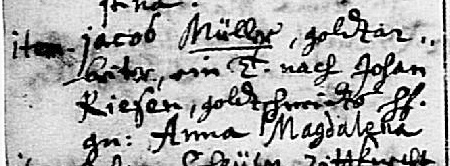 item. Jacob Müller, goldtar..
beiter, ein T. nach Johan
Riesen, goldtschmidts hf.
gn: Anna Magdalena